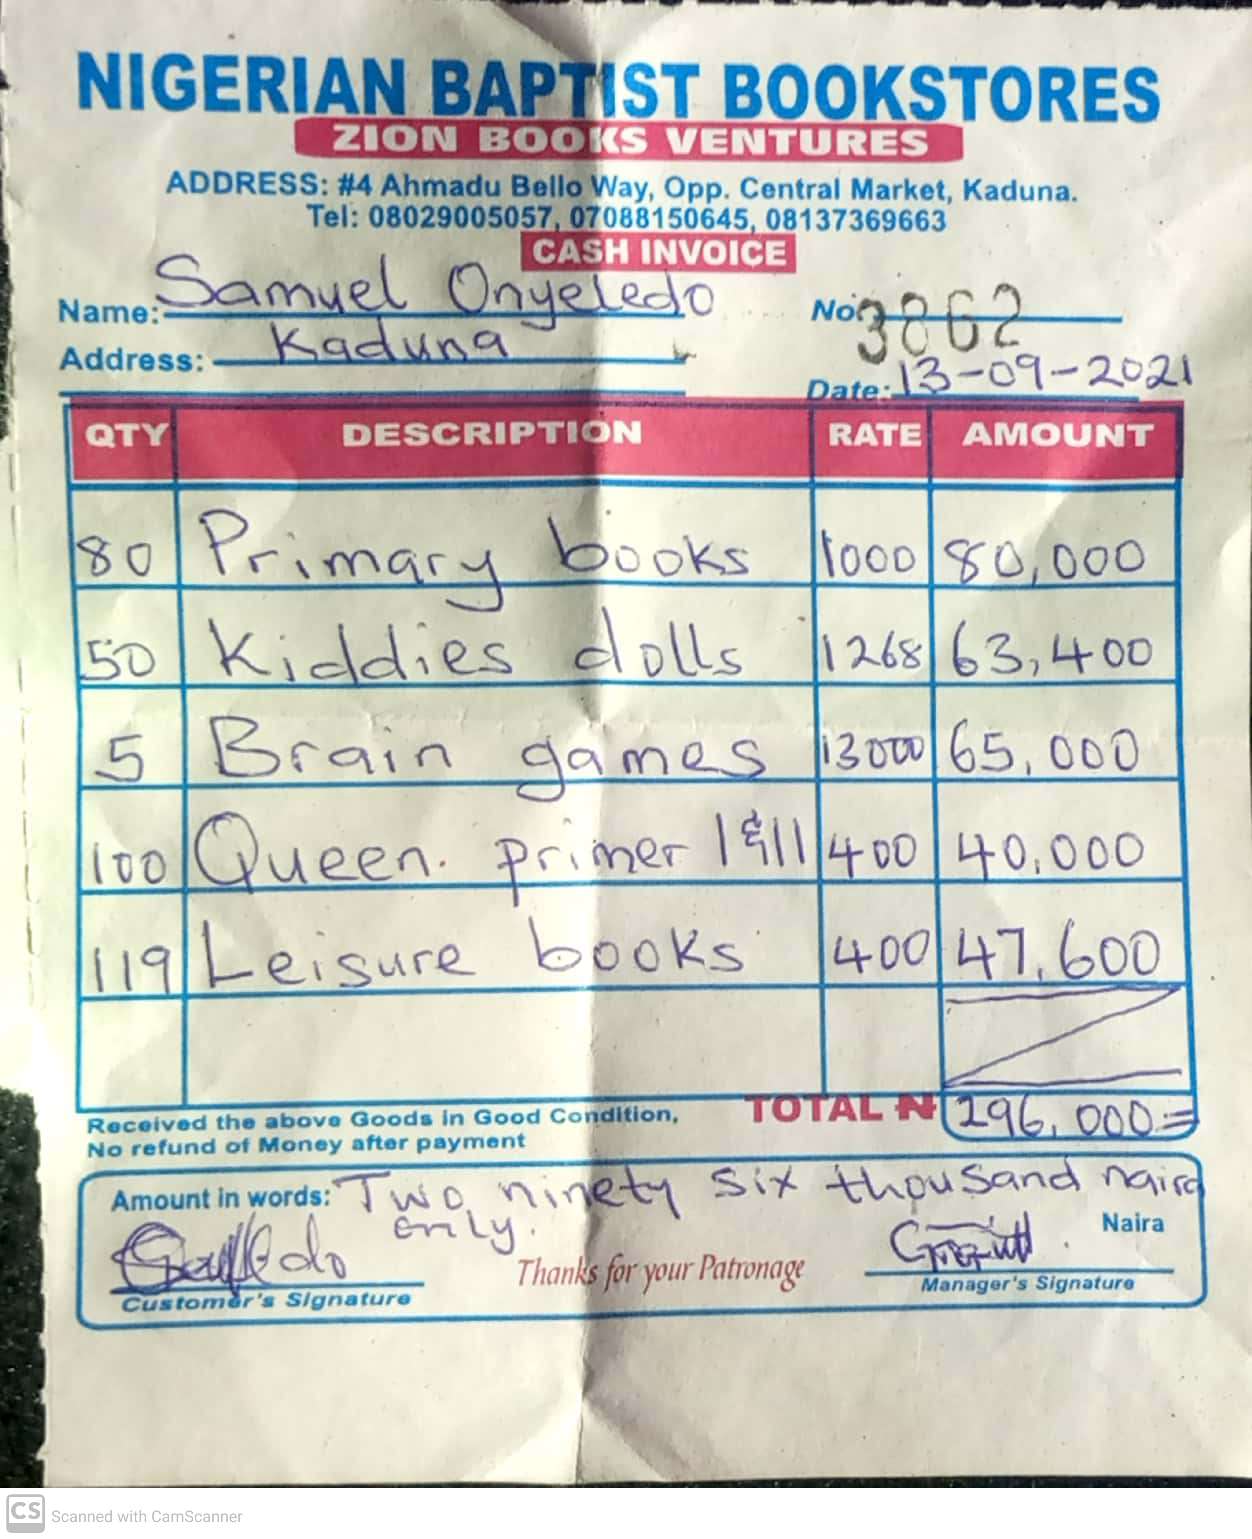 NIGERIAN BAPTIST BOOKSTORES
ZION BOOKS VENTURES
ADDRESS: #4 Ahmadu Bello Way, Opp. Central Market, Kaduna.
Tel: 08029005057, 07088150645, 08137369663
CASH INVOICE
Name: Samuel Onyeledo No: 3862
Address: Kaduna Date: 13-09-2021
QTY DESCRIPTION RATE AMOUNT
80 Primary books 1000 80,000
50 Kiddies dolls 1268 63,400
5 Brain games 13000 65,000
100 Queen. primer 1 & 11 400 40,000
119 Leisure books 400 47,600
Received the above Goods in Good Condition, TOTAL ₦ 296,000=
No refund of Money after payment
Amount in words: Two ninety six thousand naira
only. Naira
Thanks for your Patronage
Customer's Signature Manager's Signature
CS Scanned with CamScanner